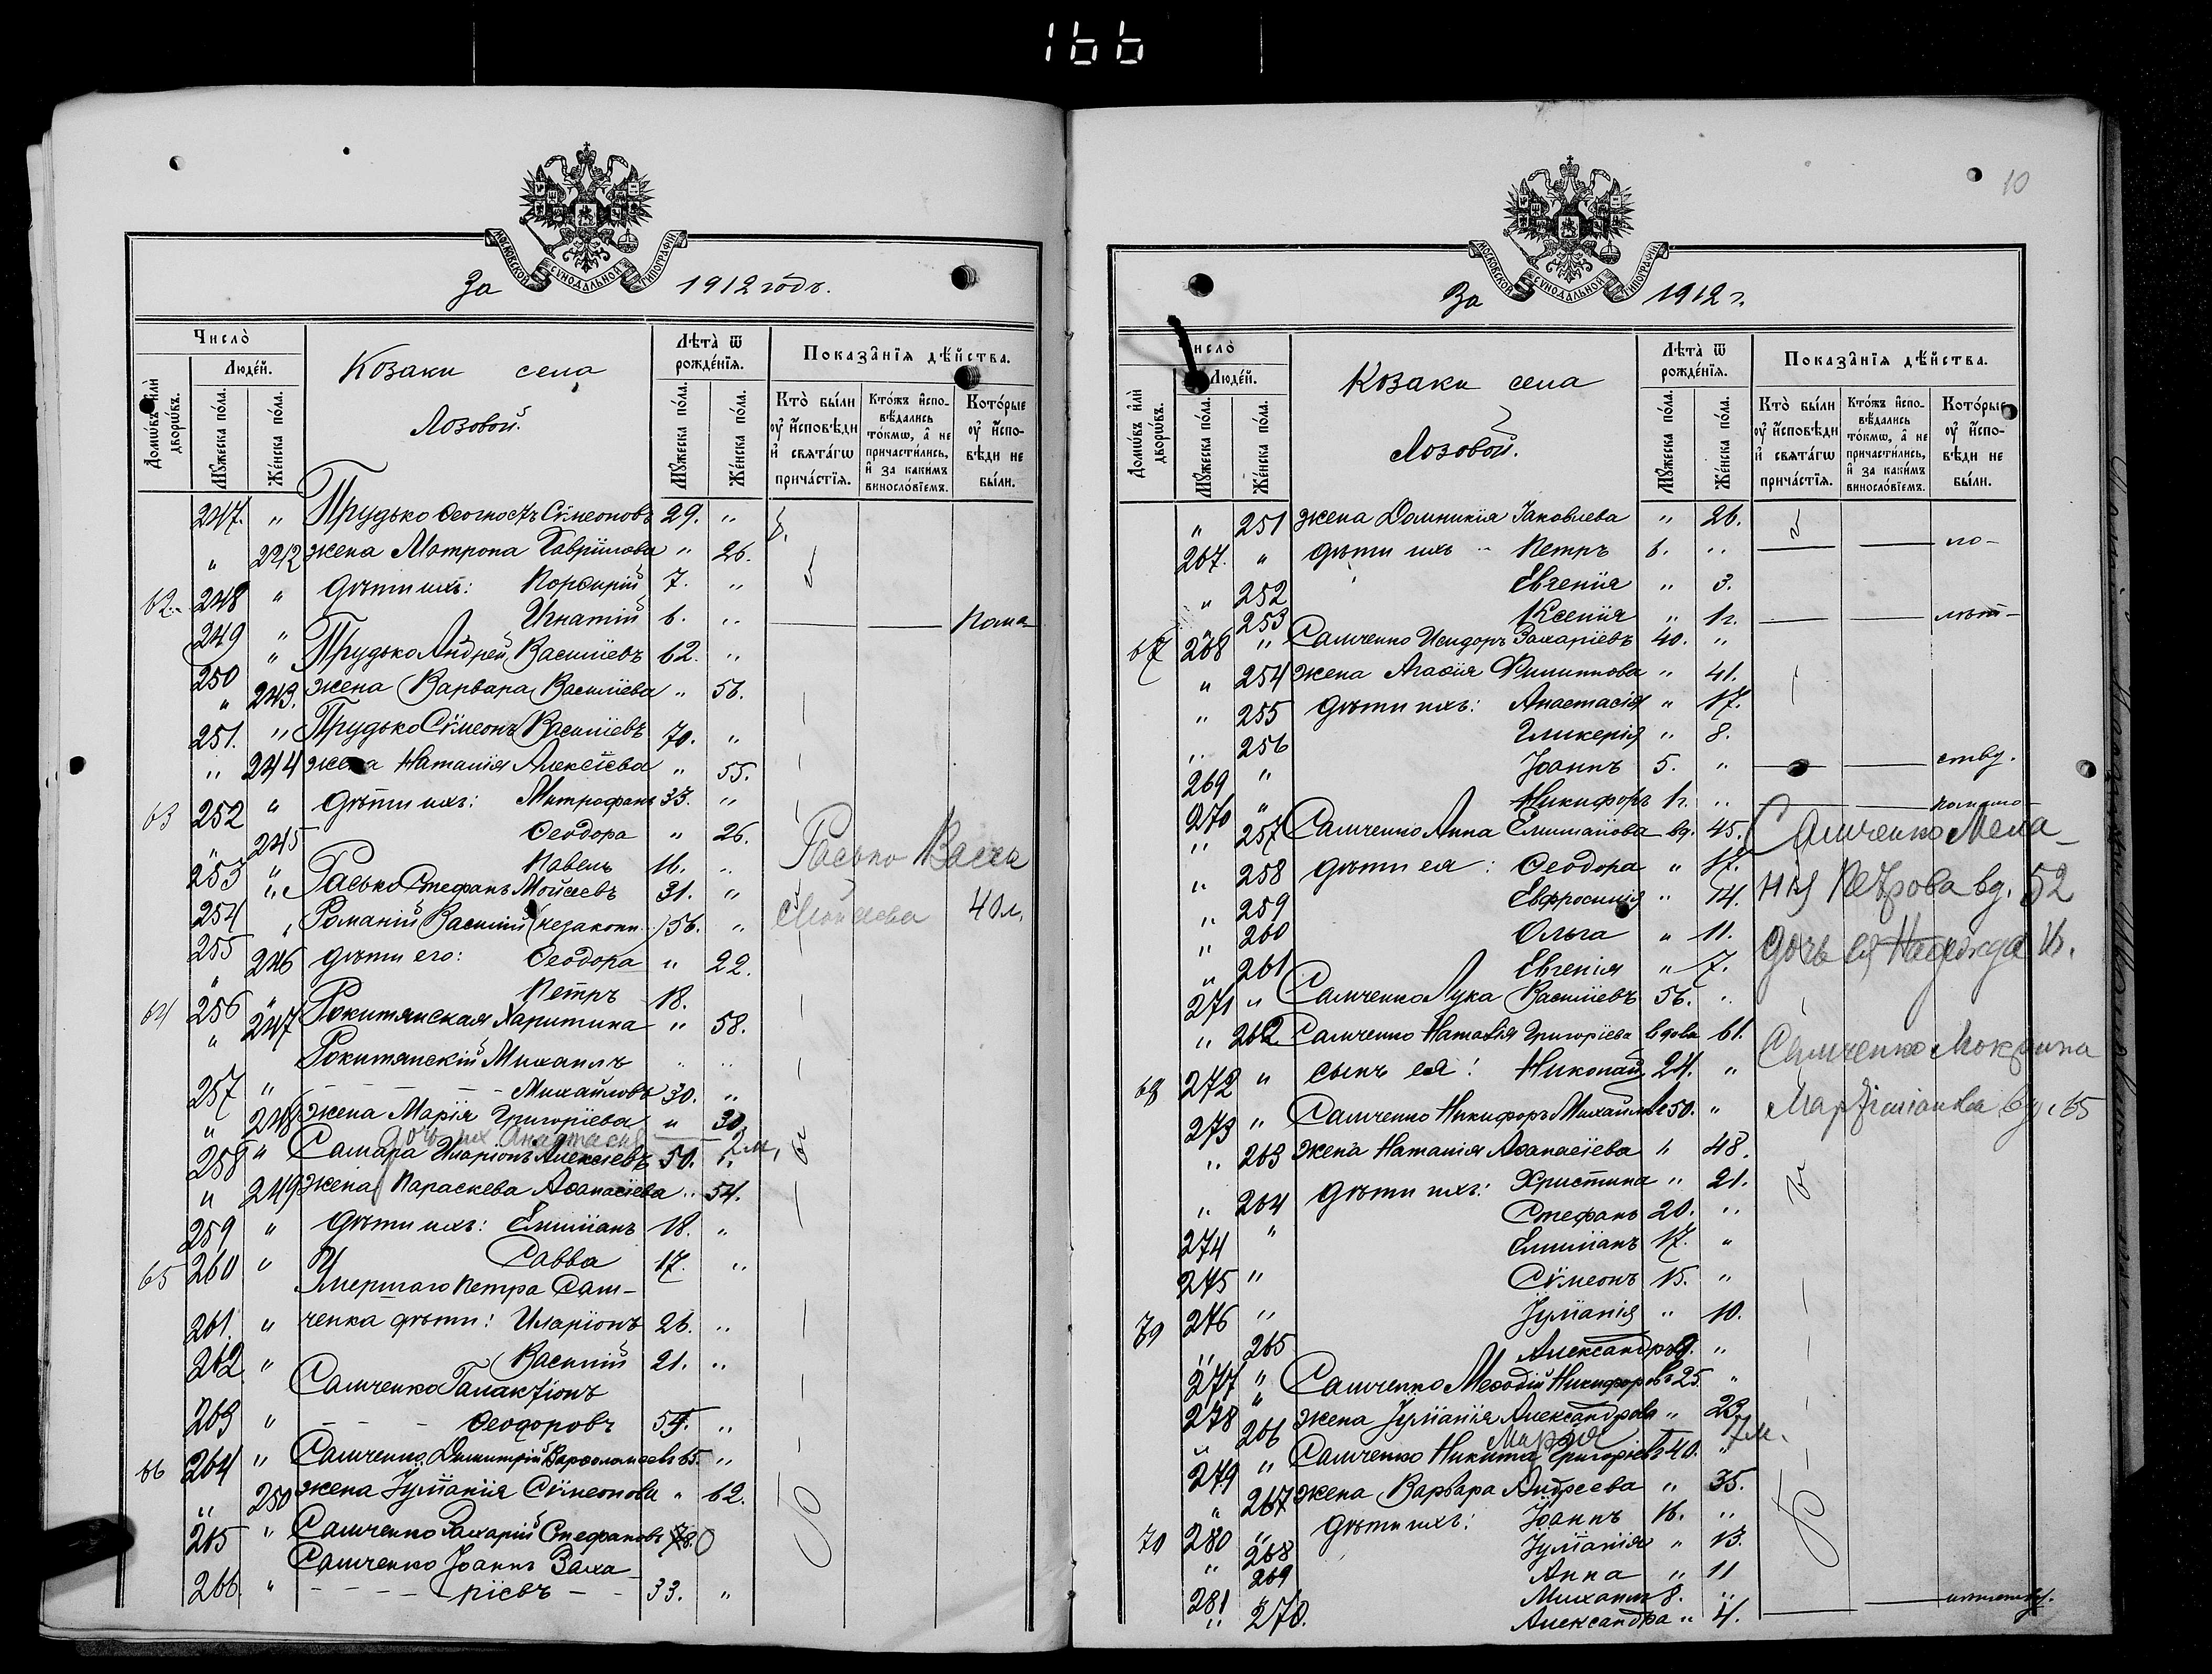 166
За 1912 годъ.
МОСКОВСКОЙ СѴНОДАЛЬНОЙ ТИПОГРАФІИ
Число̀
Домѡвъ и҆лѝ дворѡвъ.
Люде́й.
Мꙋ́жеска по́ла.
Же́нска по́ла.
Козаки села
Лозовой.
Лѣта̀ ѿ рожде́нїѧ.
Мꙋ́жеска по́ла.
Же́нска по́ла.
Показа̑нїѧ дѣ́йства.
Кто̀ бы́ли ᲂу҆ и҆́сповѣди и҆ свѧта́гѡ прича́стїѧ.
Кто́жъ и҆спо-вѣ́дались то́кмѡ, а҆ не причасти́лись, и҆ за каки́мъ виносло́вїемъ.
Кото́рые ᲂу҆ и҆́спо-вѣди не бы́ли.
247. „ Прудько Ѳеогностъ Сѵмеоновъ 29. „
„ 242 жена Матрона Гавріилова „ 26.
62. 248 „ дѣти ихъ: Порфирій 7. „
249 „ Игнатій 6. „ Пома-
250 „ Прудько Андрей Василіевъ 62. „
„ 243. жена Варвара Василіева „ 56.
251. „ Прудько Сѵмеонъ Василіевъ 70. „
„ 244 жена Наталія Алексіева „ 55.
63 252 „ дѣти ихъ: Митрофанъ 33. „
„ 245 Ѳеодора „ 26.
253 „ Павелъ 16. „
254 „ Расько Стефанъ Мойсеевъ 31. „
Расько Васса
Мойсеева 40 л.
255 „ Романій Василій (незаконн.) 56. „
„ 246 дѣти его: Ѳеодора „ 22.
64 256 „ Петръ 18.
„ 247 Рокитянская Харитина „ 58.
Рокитянскій Михаилъ
257 „ Михайловъ 30. „
„ 248 жена Марія Григоріева „ 30.
дочь их Анастасия 2 м.
258 „ Самара Иларіонъ Алексіевъ 50. „
„ 249 жена Параскева Аѳанасіева „ 54.
259 „ дѣти ихъ: Емиліанъ 18. „
65 260 „ Савва 17. „
Умершаго Петра Сам-
261. „ ченка дѣти: Иларіонъ 26. „
262 „ Василій 21. „
Самченко Галактіонъ
263 „ Ѳеодоровъ 54. „
66 264 „ Самченко Димитрій Варѳоломеевъ 65. „
„ 250 жена Іуліанія Сѵмеонова „ 62.
265 „ Самченко Захарій Стефановъ 78.
Самченко Іоаннъ Заха-
266. „ ріевъ 33. „
10
За 1912 г.
МОСКОВСКОЙ СѴНОДАЛЬНОЙ ТИПОГРАФІИ
Число̀
Домѡвъ и҆лѝ дворѡвъ.
Люде́й.
Мꙋ́жеска по́ла.
Же́нска по́ла.
Козаки села
Лозовой.
Лѣта̀ ѿ рожде́нїѧ.
Мꙋ́жеска по́ла.
Же́нска по́ла.
Показа̑нїѧ дѣ́йства.
Кто̀ бы́ли ᲂу҆ и҆́сповѣди и҆ свѧта́гѡ прича́стїѧ.
Кто́жъ и҆спо-вѣ́дались то́кмѡ, а҆ не причасти́лись, и҆ за каки́мъ виносло́вїемъ.
Кото́рые ᲂу҆ и҆́спо-вѣди не бы́ли.
„ 251 жена Домникія Іаковлева „ 26.
267. „ дѣти ихъ Петръ 6. „ ло-
„ 252 Евгенія „ 3.
„ 253 Ксенія „ 1 г. лѣт-
67 268 „ Самченко Исидоръ Захаріевъ 40. „
„ 254 жена Агаѳія Филиппова „ 41.
„ 255 дѣти ихъ: Анастасія „ 17.
„ 256 Гликерія „ 8.
269 „ Іоаннъ 5. „ ству.
270 „ Никифоръ 1 г. „
„ 257 Самченко Анна Емиліанова вд. 45.
Самченко Мела-
„ 258 дѣти ея: Ѳеодора „ 17.
ния Петрова вд. 52
„ 259 Евфросинія „ 14.
„ 260 Ольга „ 11.
дочь ея Надежда 16.
„ 261 Евгенія „ 7.
271 „ Самченко Лука Василіевъ 56. „
„ 262 Самченко Наталія Григоріева вдова 61.
Самченко Мокрина
68 272 „ сынъ ея: Николай 24. „
273 „ Самченко Никифоръ Михайловъ 50. „
Мартиніанова вд. 65
„ 263 жена Наталія Аѳанасіева „ 48.
„ 264 дѣти ихъ: Христина „ 21.
274 „ Стефанъ 20. „
Емиліанъ 17. „
275 „ Сѵмеонъ 15. „
69 276 „ Іуліанія „ 10.
„ 265 Александръ 9. „
277 „ Самченко Меѳодій Никифоровъ 25. „
278 „ жена Іуліанія Александрова „ 23.
Мария 7 м.
„ 266 Самченко Никита Григоріевъ 40. „
279 „
„ 267 жена Варвара Андреева „ 35.
70 280 „ дѣти ихъ: Іоаннъ 16. „
„ 268 Іуліанія „ 13.
„ 269 Анна „ 11
281 „ Михаилъ 8. „
„ 270. Александра „ 4.